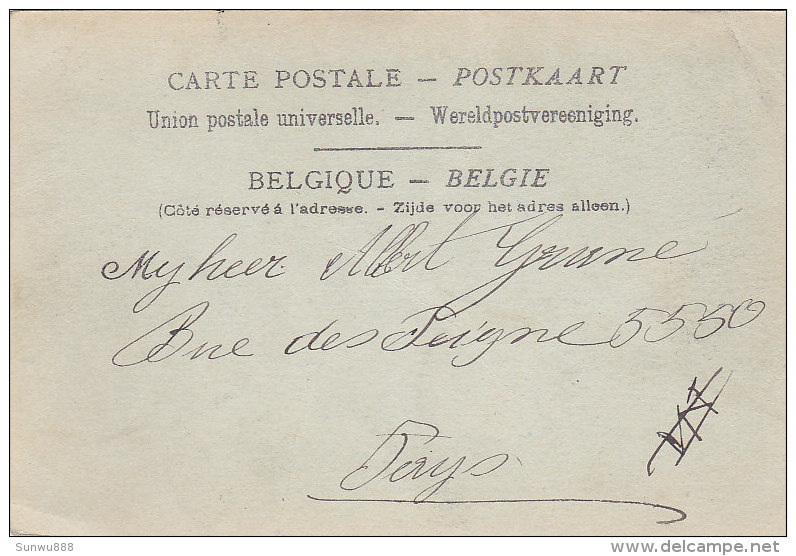 CARTE POSTALE — POSTKAART
Union postale universelle. — Wereldpostvereeniging.
BELGIQUE — BELGIE
(Côté réservé á l'adresse. - Zijde voor het adres alleen.)
Myheer Albert
Rue des 5550
Pays
Sunwu888
delcampe.net